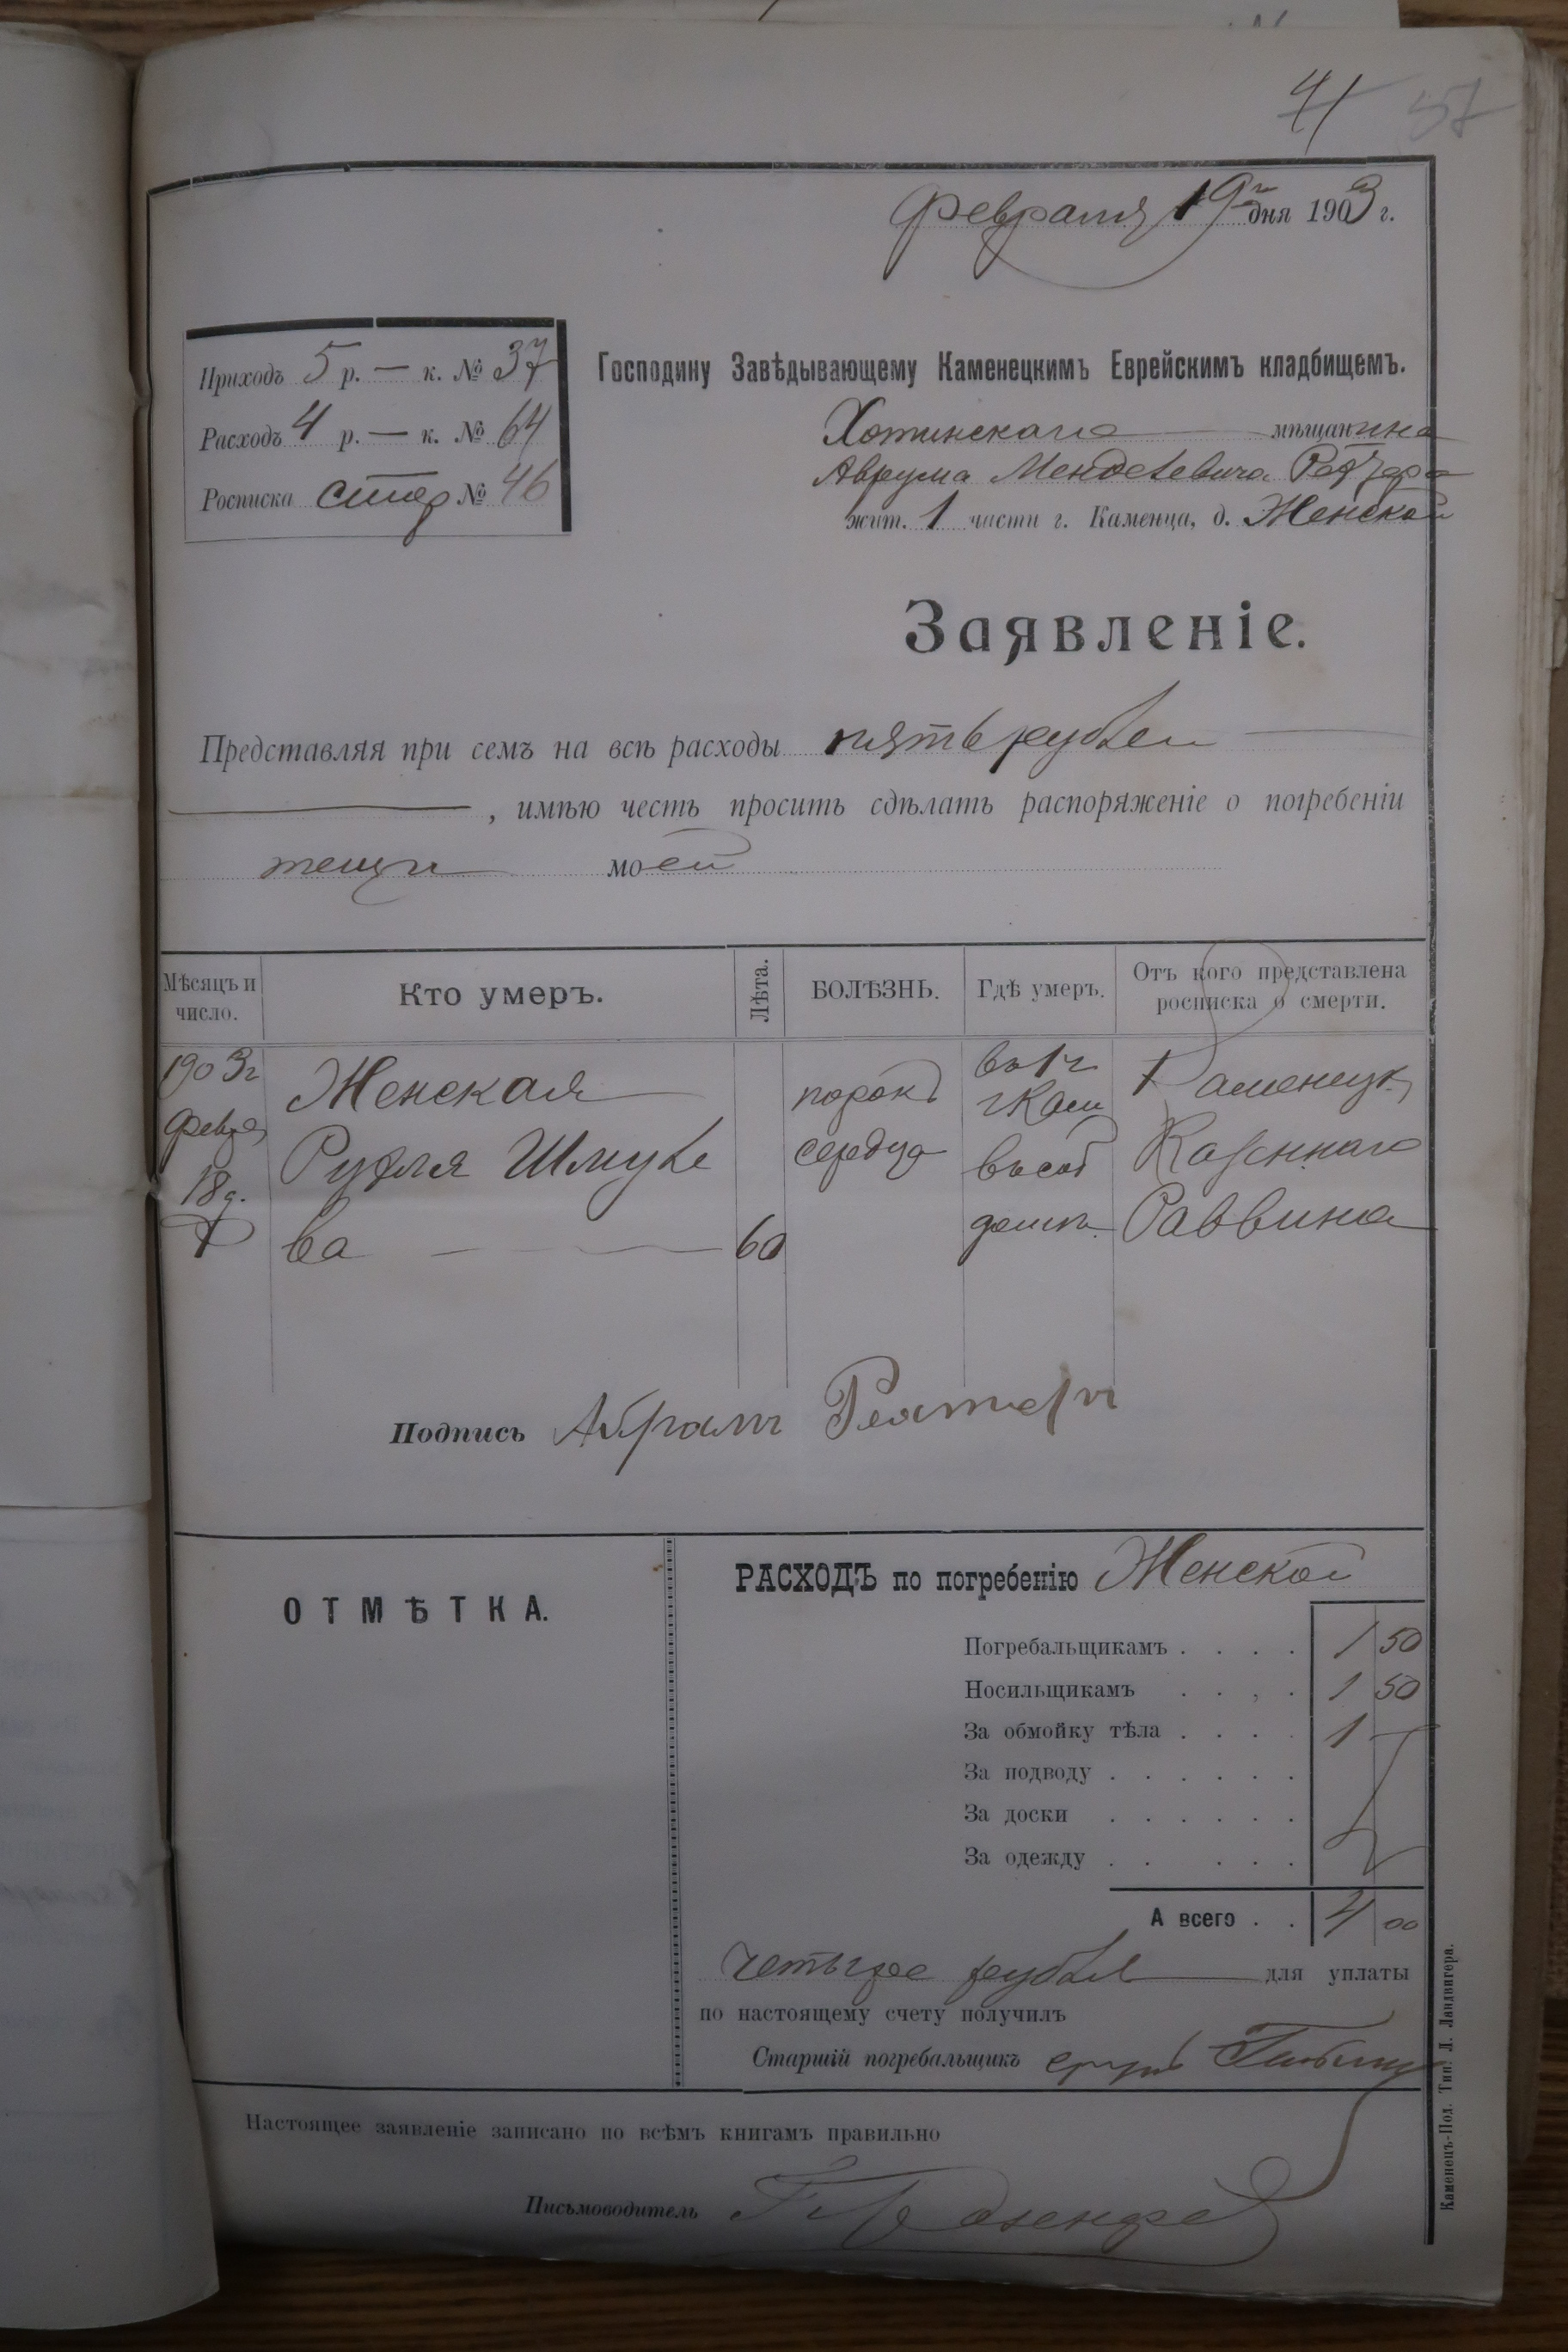 41 57
Февраля 19го дня 1903 г.
Приходъ 5 р. — к. № 37
Расходъ 4 р. — к. № 64
Росписка № 46
Господину Завѣдывающему Каменецкимъ Еврейскимъ кладбищемъ.
Хотинскаго мѣщанина
Аврума Менделевича
жит. 1 части г. Каменца, д. Женской
Заявленіе.
Представляя при семъ на всѣ расходы пять рублей —
—, имѣю честь просить сдѣлать распоряженіе о погребеніи
тещи моей
Мѣсяцъ и число. Кто умеръ. Лѣта. БОЛѢЗНЬ. Гдѣ умеръ. Отъ кого представлена росписка о смерти.
1903 г Женская порокъ въ 1 ч Каменецк.
Февра Рухля Шмуле сердца г Кам Казеннаго
18 д. ва — 60 въ соб домѣ. Раввина
Подпись Абрамъ
ОТМѢТКА.
РАСХОДЪ по погребенію Женской
Погребальщикамъ . . . . 1 50
Носильщикамъ . . , . 1 50
За обмойку тѣла . . . . 1 —
За подводу . . . . . .
За доски . . . . . .
За одежду . . . . .
А всего . . 4 00
Четыре рубля — для уплаты
по настоящему счету получилъ
Старшій погребальщикъ
Настоящее заявленіе записано по всѣмъ книгамъ правильно
Письмоводитель
Каменецъ-Под. Тип. Л. Ландвигера.